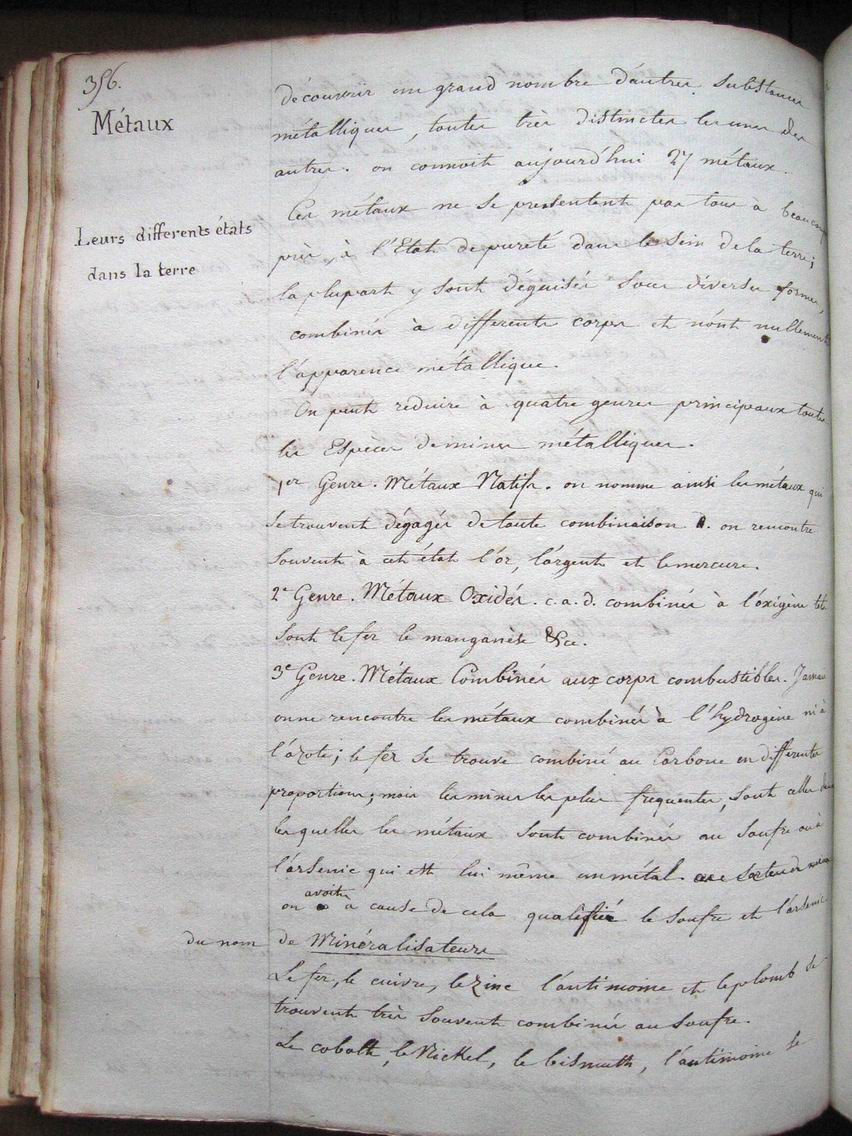 356.
Métaux
découvrir un grand nombre d'autres substances
métalliques, toutes très distinctes les unes des
autres. on connoit aujourd'hui 27 métaux.
Leurs differents états
dans la terre
Ces métaux ne se presentent pas tous a beaucoup
près à l'Etat de pureté dans le sein de la terre;
la plupart y sont déguisés sous diverses formes,
combinés à differents corps et n'ont nullement
l'apparence métallique.
On peut reduire à quatre genres principaux toutes
les Especes de mines métalliques.
1er Genre. Métaux Natifs. on nomme ainsi les métaux qui
se trouvent dégagés de toute combinaison. on rencontre
souvent à cet état l'or, l'argent et le mercure.
2e Genre. Métaux Oxidés. c. a. d. combinés à l'oxigène tels
sont le fer le manganese &ce.
3e Genre. Métaux Combinés aux corps combustibles. Jamais
on ne rencontre les métaux combinés à l'hydrogène ni à
l'azote; le fer se trouve combiné au Carbone en differentes
proportions; mais les mines les plus frequentes, sont celles dans
lesquelles les métaux sont combinés au soufre ou à
l'arsenic qui est lui même un métal.
on avoit à cause de cela qualifié le soufre et l'arsenic
du nom de Minéralisateurs
Le fer, le cuivre, le zinc l'antimoine et le plomb se
trouvent très souvent combinés au soufre.
Le cobalt, le Nickel, le bismuth, l'antimoine se